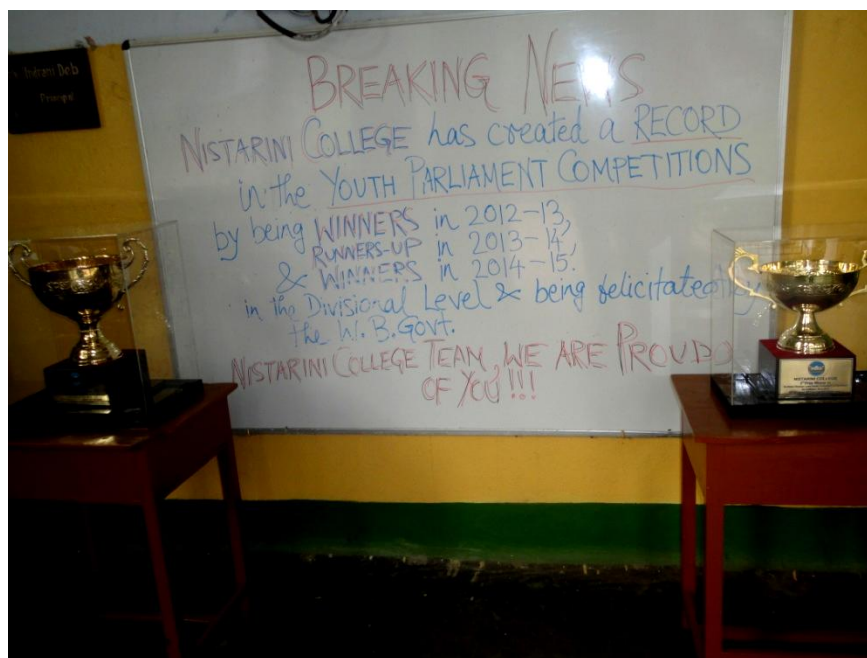 Indrani Deb
Principal
BREAKING NEWS
NISTARINI COLLEGE has created a RECORD
in the YOUTH PARLIAMENT COMPETITIONS
by being WINNERS in 2012-13,
RUNNERS-UP in 2013-14,
& WINNERS in 2014-15.
in the Divisional Level & being felicitated by
the W.B. Govt.
NISTARINI COLLEGE TEAM, WE ARE PROUD
OF YOU !!!
NISTARINI COLLEGE